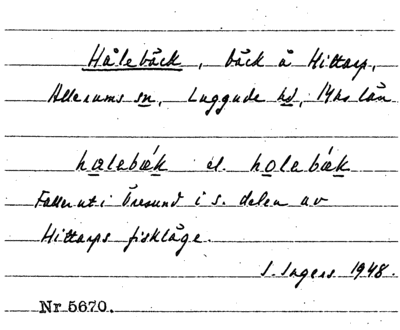 Hålebäck, bäck å Hittarp,
Allerums sn, Luggude hd, Mhs län
halebæk el. holebæk
Faller ut i Öresund i s. delen av
Hittarps fiskläge.
I. Ingers 1948.
Nr 5670.